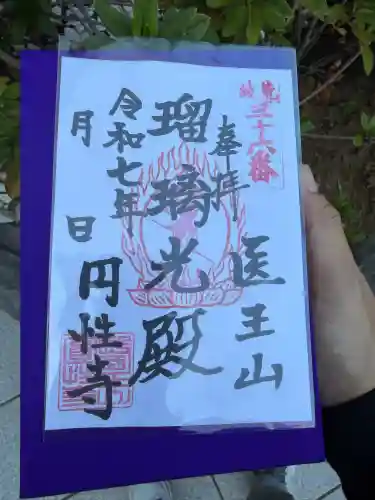 三十六番
奉拝
医王山
瑠璃光殿
令和七年
月 日
円性寺